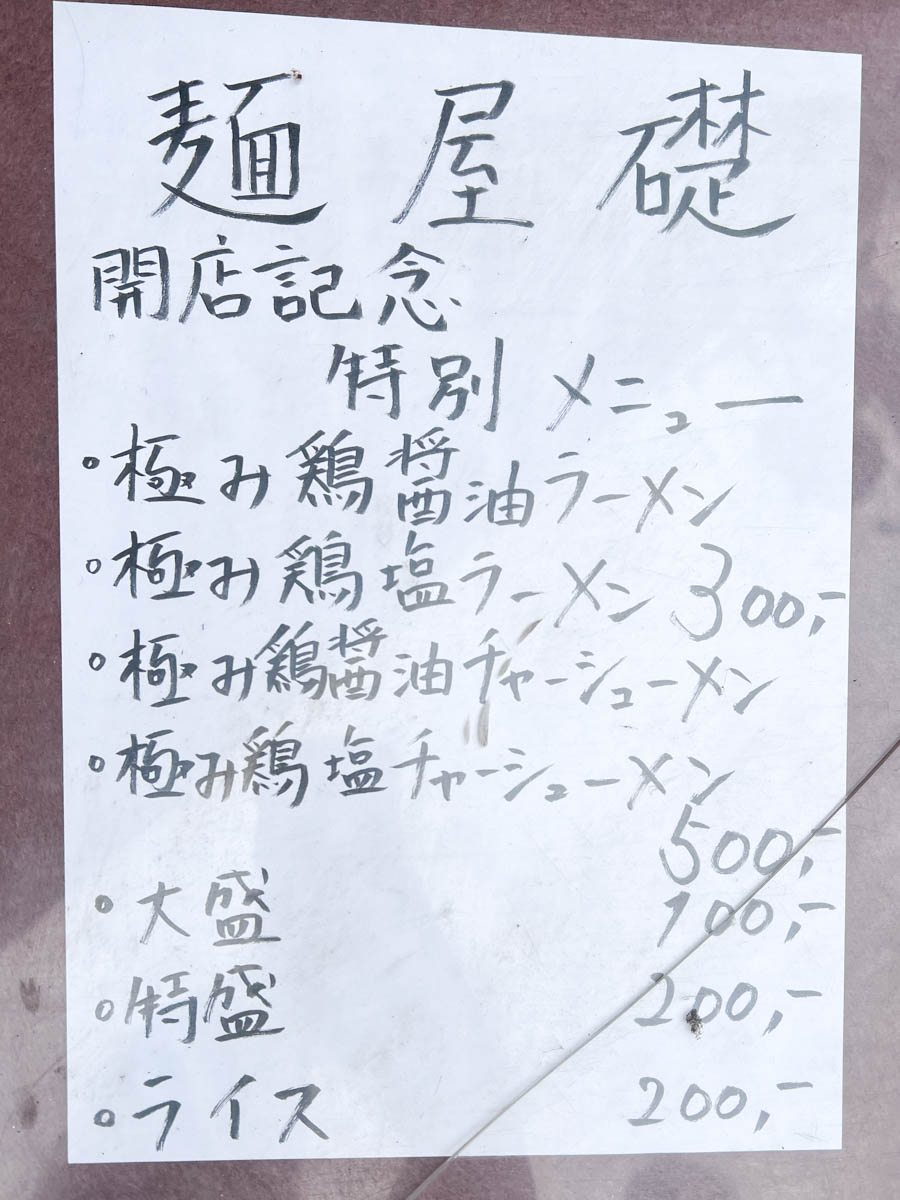 麺屋礎
開店記念
特別メニュー
◦極み鶏醤油ラーメン
◦極み鶏塩ラーメン 300,-
◦極み鶏醤油チャーシューメン
◦極み鶏塩チャーシューメン
500,-
◦大盛 100,-
◦特盛 200,-
◦ライス 200,-